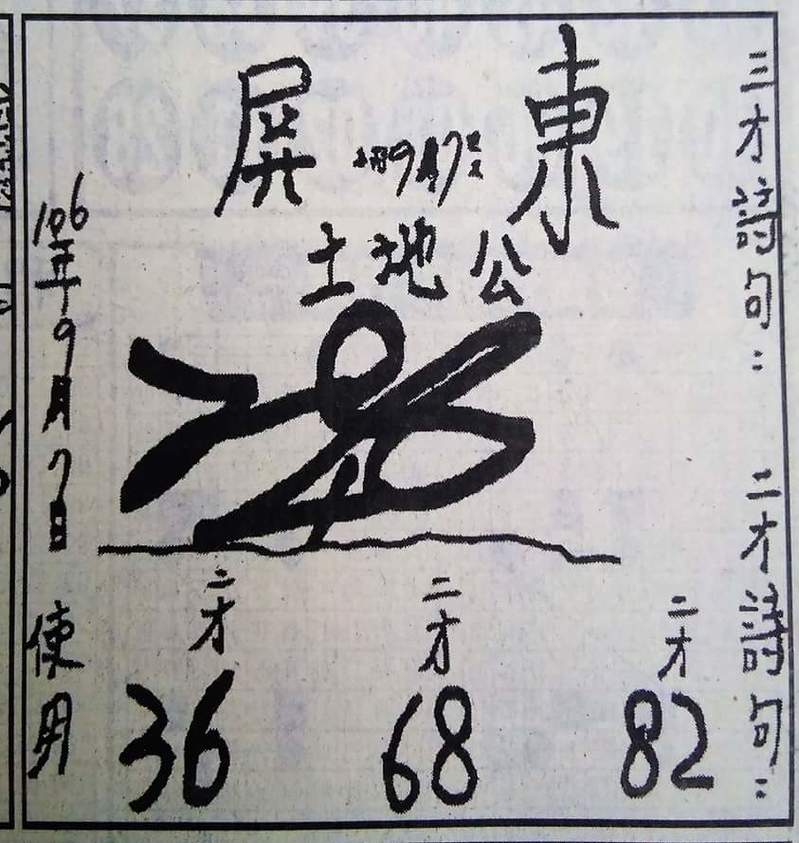 三才詩句：
二才詩句：
東屏
9月7
土地公
二才 二才 二才
36 68 82
106年9月7日
使用